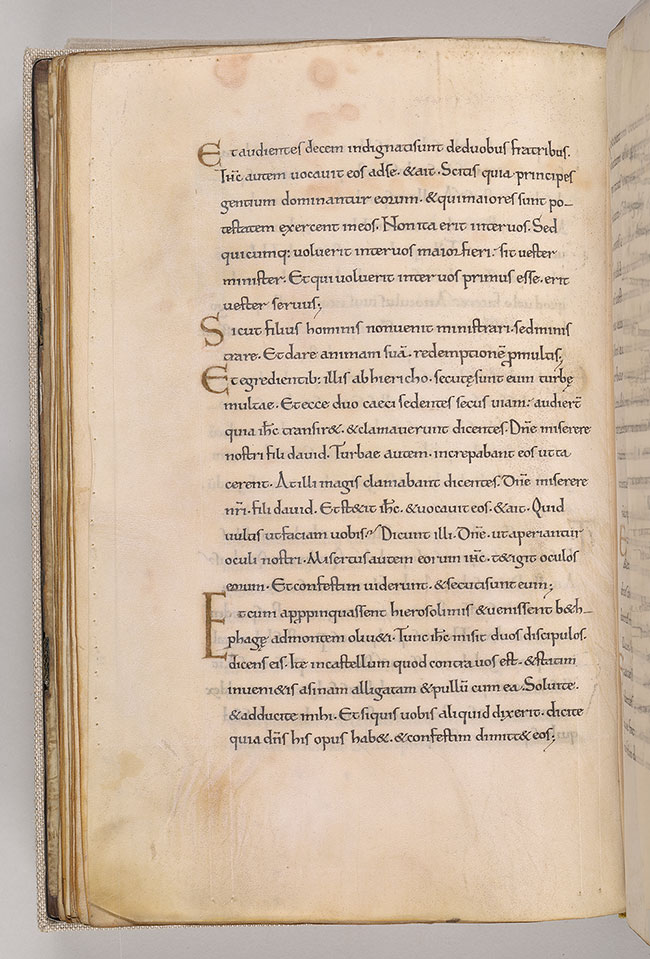 Et audientes decem indignatisunt deduobus fratribus.
Ihc autem uocauit eos adse. &ait. Scitis quia principes
gentium dominantur eorum. &quimaiores sunt po-
testatem exercent ineos. Nonita erit inter uos. Sed
quicumq: uoluerit inter uos maior fieri. sit uester
minister. Et qui uoluerit inter uos primus esse. erit
uester seruus;
Sicut filius hominis nonuenit ministrari. sedminis
trare. Et dare animam suā. redemptionē ꝓmultis;
Et egredientib: illis abhiericho. secutęsunt eum turbę
multae. Et ecce duo caeci sedentes secus uiam. audier̄t
quia ihc transir&. &clamauerunt dicentes. Dn̄e miserere
nostri fili dauid. Turbae autem. increpabant eos ut ta
cerent. At illi magis clamabant dicentes. Dn̄e miserere
nr̄i. fili dauid. Et st&it ihc. &uocauit eos. &ait. Quid
uultis ut faciam uobis? Dicunt illi. Dn̄e. ut aperiantur
oculi nostri. Misertus autem eorum ihc. t&igit oculos
eorum. Et confestim uiderunt. &secutisunt eum;
Et cum apꝓpinquassent hierosolimis &uenissent b&h-
phagę admontem oliu&i. Tunc ihc misit duos discipulos.
dicens eis. Ite incastellum quod contra uos est. &statim
inueni&is asinam alligatam &pullū cum ea. Soluite.
&adducite mihi. Et siquis uobis aliquid dixerit. dicite
quia dn̄s his opus hab&. &confestim dimitt& eos;